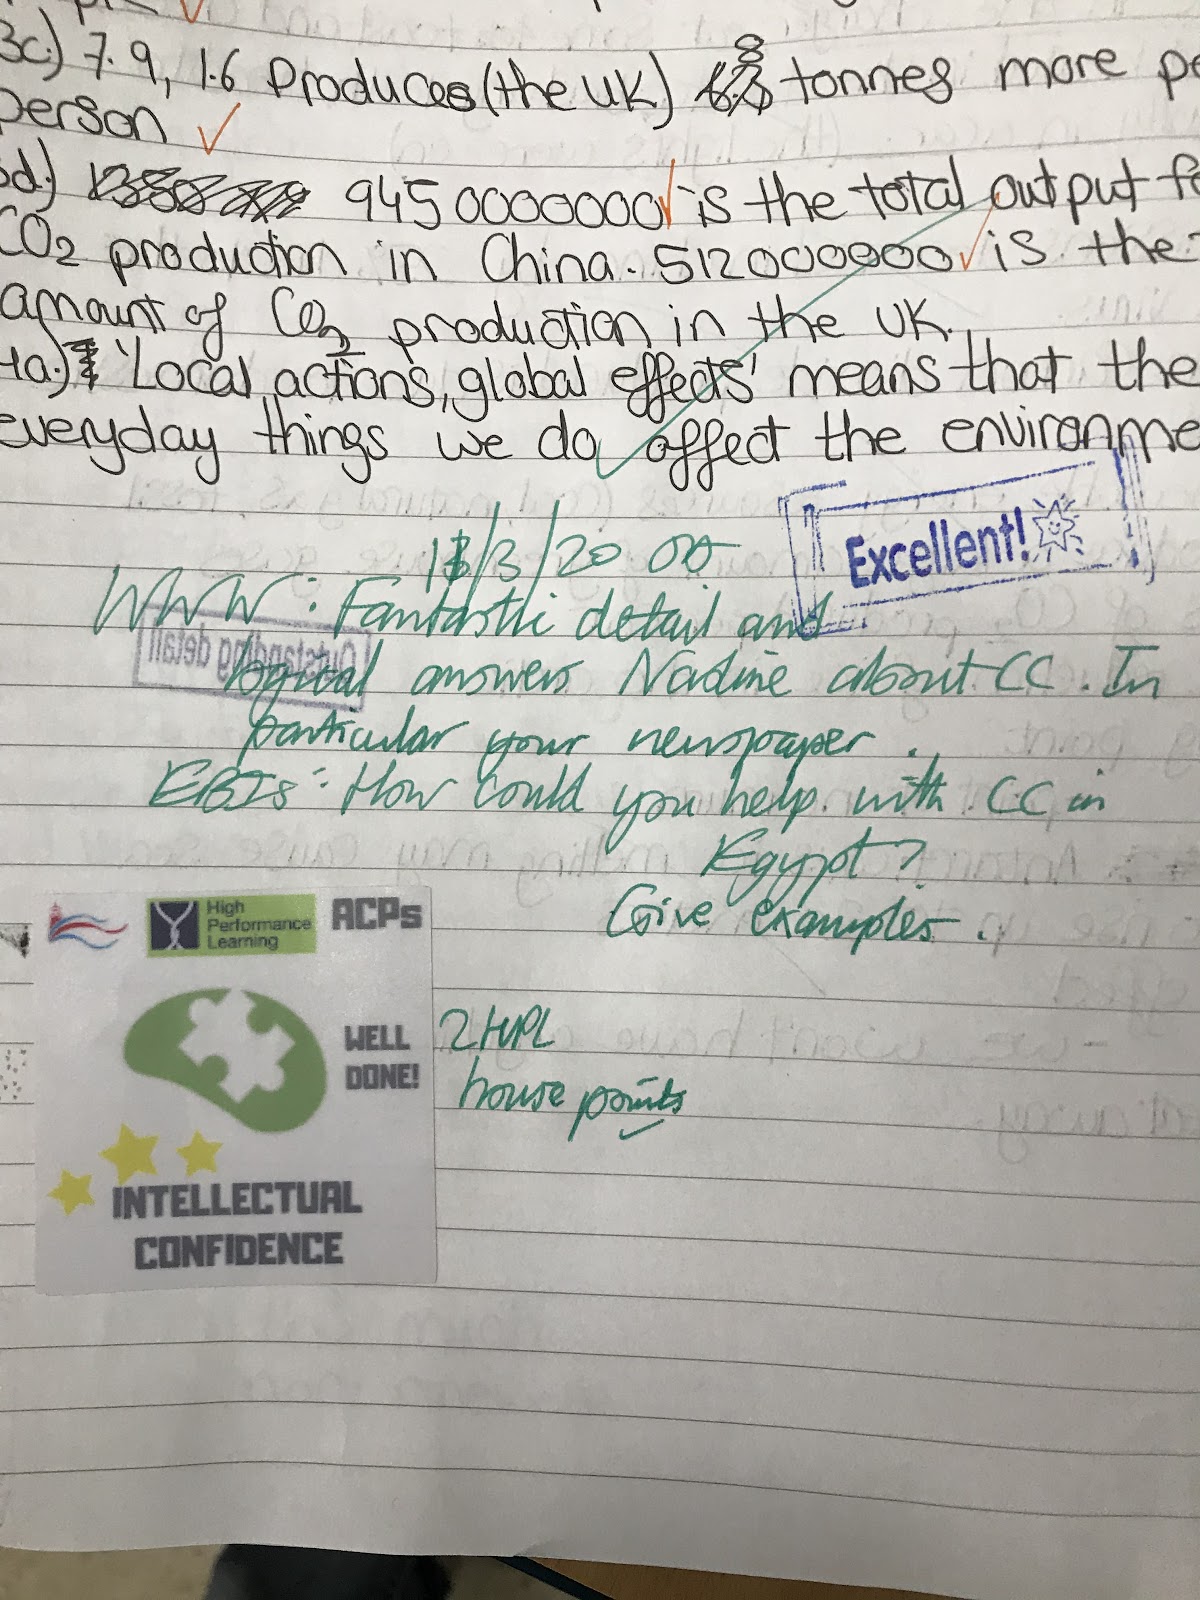 3c.) 7.9, 1.6 Produces (the UK) 8 tonnes more pe
person
3d.) 9450000000 is the total output fo
CO2 production in China. 512000000 is the
amount of CO2 production in the UK.
4a.) 'Local actions, global effects' means that the
everyday things we do affect the environme
Excellent!
/3/20
WWW: Fantastic detail and
Outstanding detail
logical answers Nadine about CC. In
particular your newspaper.
EBIs: How could you help with CC in
Egypt?
Give examples.
High
Performance
Learning
ACPs
WELL
DONE!
2 HPL
house points
INTELLECTUAL
CONFIDENCE